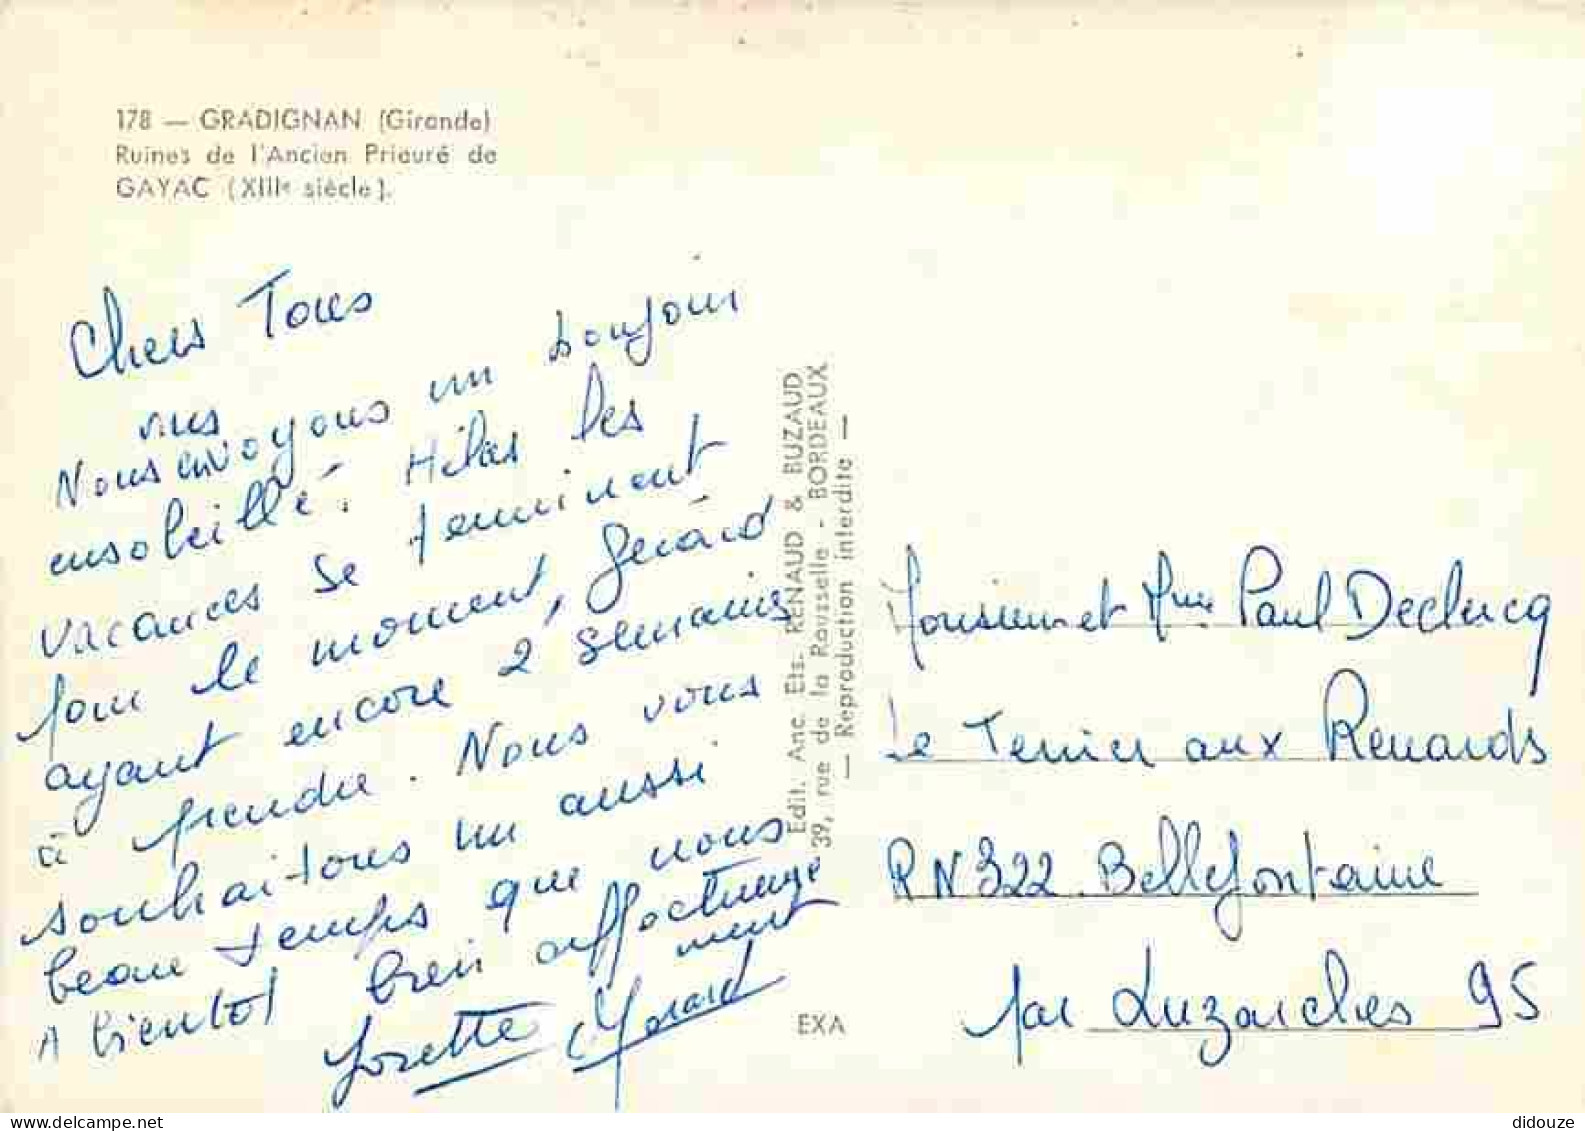 178 — GRADIGNAN (Gironde)
Ruines de l'Ancien Prieuré de
GAYAC (XIIIe siècle).
Chers Tous
nus
Nous envoyons un bonjour
ensoleillé. Hélas les
vacances se terminent
pour le moment, Gérard
ayant encore 2 semaines
à prendre. Nous vous
souhaitons un aussi
beau temps que nous
A bientôt bien affectueuse
ment
Josette Gérard
Edit. Anc. Ets. RENAUD & BUZAUD
39, rue de la Rousselle - BORDEAUX
— Reproduction interdite —
EXA
Monsieur et Mme Paul Declercq
Le Terrier aux Renards
RN 322 Bellefontaine
par Luzarches 95
didouze